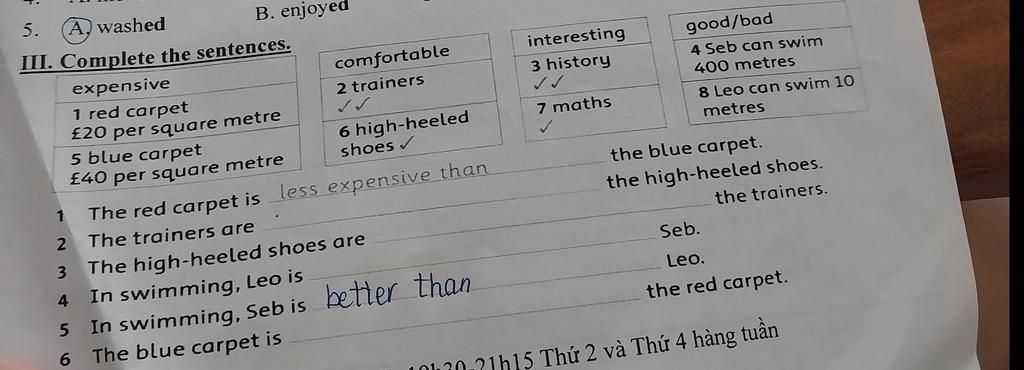 5. A. washed B. enjoyed
III. Complete the sentences.
expensive
1 red carpet
£20 per square metre
5 blue carpet
£40 per square metre
comfortable
2 trainers
✓✓
6 high-heeled
shoes ✓
interesting
3 history
✓✓
7 maths
✓
good/bad
4 Seb can swim
400 metres
8 Leo can swim 10
metres
1 The red carpet is less expensive than the blue carpet.
2 The trainers are the high-heeled shoes.
3 The high-heeled shoes are the trainers.
4 In swimming, Leo is Seb.
5 In swimming, Seb is better than Leo.
6 The blue carpet is the red carpet.
21h15 Thứ 2 và Thứ 4 hàng tuần